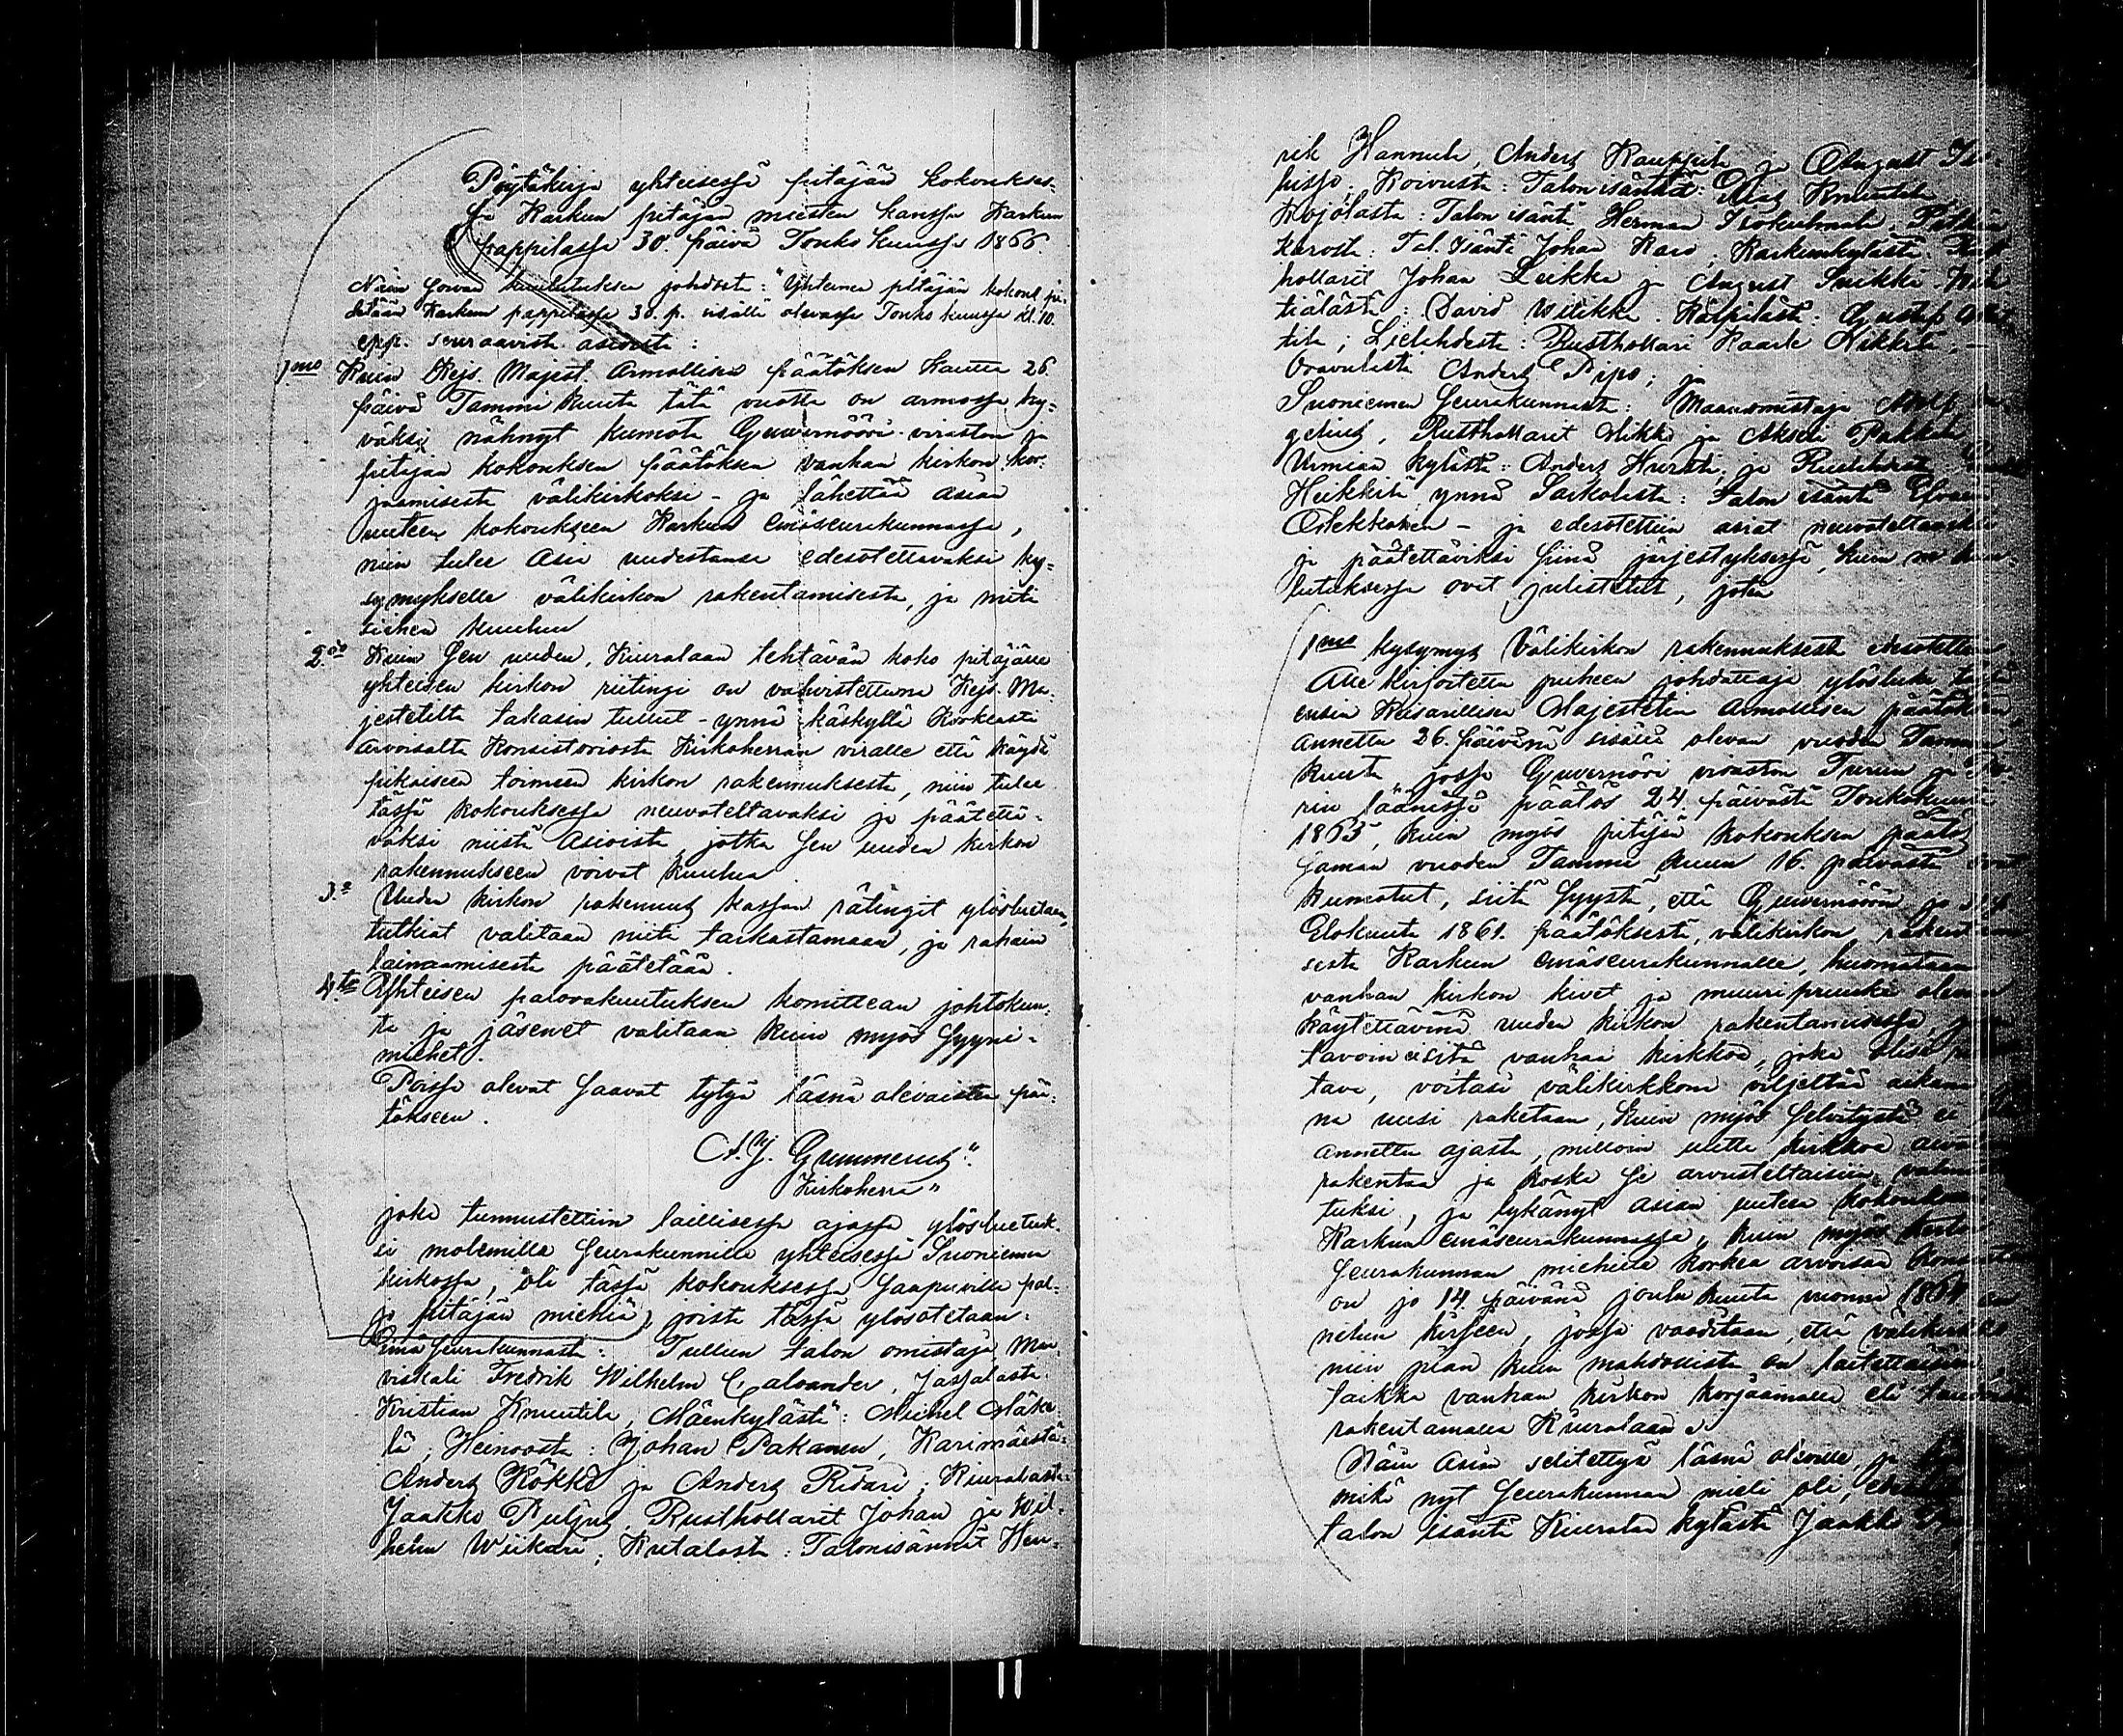 Pöytäkirja yhteisessä pitäjän kokoukses-
sa Karkun pitäjän miesten kanssa Karkun
pappilassa 30. päivä Touko kuussa 1866.
Näin sowan kuulutuksen johdosta: "Yhteinen pitäjän kokous pi-
detään Karkun pappilassa 30. p. sisällä olevassa Touko kuussa kl. 10.
epp. seuraavista asioista:
1mo Kuin Keis. Majest. Armollisen päätöksen kautta 26.
päivä Tammi kuuta tätä vuotta on armossa hy-
väksi nähnyt kumota Guvernööri-viraston ja
pitäjän kokouksen päätöksen vanhan kirkon kor-
jaamisesta välikirkoksi - ja lähettää asian
uuteen kokoukseen Karkun emäseurakunnassa,
niin tulee asia uudestansa edesotettavaksi ky-
symyksellä välikirkon rakentamisesta, ja mitä
siihen kuuluu
2do Kuin sen uuden, Kiuralaan tehtävän koko pitäjän
yhteisen kirkon riitingi on vahvistettuna Keis. Ma-
jestetiltä takasin tullut - ynnä käskyllä Korkeasti
arvoisalta Konsistoriosta Kirkoherran viralle että käydä
pikaiseen toimeen kirkon rakennuksesta, niin tulee
tässä kokouksessa neuvoteltavaksi ja päätettä-
väksi niistä asioista, jotka sen uuden kirkon
rakennukseen voivat kuulua.
3o Uuden kirkon rakennus kassan rätingit ylösluetaan,
tutkiat valitaan niitä tarkastamaan, ja rahain
lainaamisesta päätetään.
4to Yhteisen palovakuutuksen komittean johtokun-
ta ja jäsenet valitaan kuin myös syyni-
miehet.
Poissa olevat saavat tytyä läsnä olevaisten pää-
tökseen.
A. J. Gummerus".
Kirkoherra"
joka tunnustettiin laillisessa ajassa ylösluetuk-
si molemille seurakunnille yhteisessä Suoniemen
kirkossa, oli tässä kokouksessa saapuvilla pal-
jo pitäjän miehiä, joista tässä ylösotetaan:
Emä seurakunnasta: Tullun talon omistaja Man-
viskali Fredrik Wilhelm Caloander, Jassalasta:
Kristian Knuutila, Mäenkylästä: Mikel Mäke-
lä, Heinoosta: Johan Pakanen, Karimäestä:
Anders Kökkö ja Anders Ridari; Kiuralasta:
Jaakko Puljus, Rusthollarit Johan ja Wil-
helm Wiikari; Kutalasta: Talonisännät Hen-
rik Hannula, Anders Kauppila ja August
Koivusta: Talon isännät: Knuutila
Kojölasta: Talon isäntä Herman Isokulmala
karosta: Tal. isäntä Johan Karo; Karkunkylästä:
hollarit Johan Leikka ja August Snikki
tiälästä: David Wilikka. Kälpilästä: Gustaf
tila; Lielahdesta: Rusthollari Kaarle Heikkilä;
Oravulasta Anders Pipo; ja
Suoniemen seurakunnasta: Maanomistaja
gelius, Rusthollarit Mikki ja Akseli Pakkala
Urmian kylästä: Anders Hursti; ja
Heikkilä ynnä Sarkolasta: talon isäntä
- ja edesotettiin asiat neuvoteltaviksi
ja päätettäviksi siinä järjestyksessä, kuin ne kuu-
lutuksessa ovat julistetut, joten
1mo kysymys Välikirkon rakennuksesta edesotettua
Alle kirjoitettu puheen johdattaja ylösluki tästä
ensin Keisarillisen Majestetin Armollisen päätöksen,
annettu 26. päivänä sisällä olevan vuoden Tammi
kuuta, jossa Guvernööri viraston Turun ja Po-
rin läänissä päätös 24. päivästä Toukokuuta
1865, kuin myös pitäjän kokouksen päätös
saman vuoden Tammi kuun 16. päivästä ovat
kumotut, siitä syystä, että Guvernöörin
Elokuuta 1861. päätöksestä, välikirkon rakentami-
sesta Karkun emäseurakunnalle, huomataan
vanhan kirkon kivet ja muuripruukit olevan
käytettävinä uuden kirkon rakentamisessa,
tavoin esitä vanhaa kirkkoa, joka olisi
tava, voitasi välikirkkona viljeltää aikana
na uusi raketaan, kuin myös selvitystä ei
annettu ajasta, milloin uutta kirkkoa
rakentaa ja koska se arvusteltaisiin valmis-
tuksi, ja lykänyt asian uuteen kokoukseen
Karkun emäseurakunnassa, kuin myös
seurakunnan miehille korkea arvoisan
on jo 14. päivänä joulu kuuta vuonna 1864
nelun kirjeen, jossa vaaditaan, että välikirkko
niin pian kuin mahdollista on laitettaisiin
taikka vanhan kirkon korjaamalla eli
rakentamalla Kiuralaan.
Näin asian selitettyä läsnä oleville, ja
mikä nyt seurakunnan mieli oli,
talon isäntä Kiuralan kylästä Jaakko